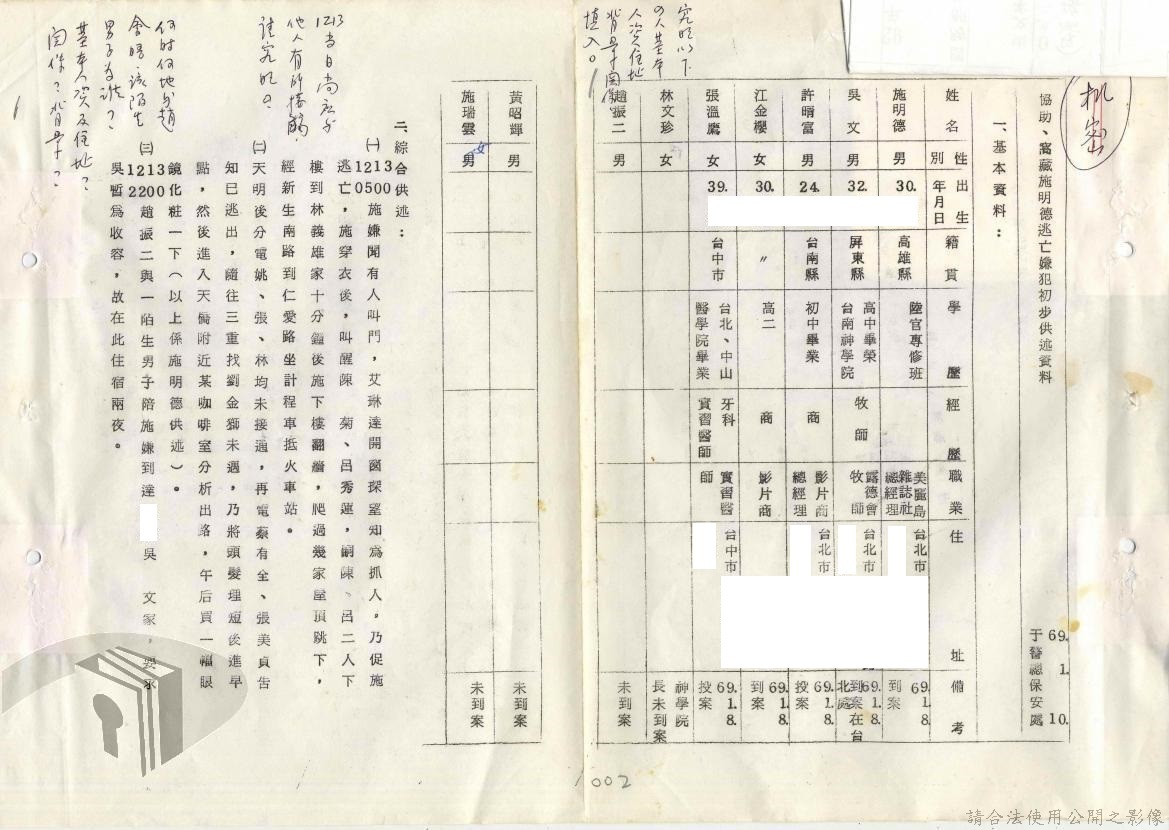 机密
協助、窩藏施明德逃亡嫌犯初步供述資料
于警總保安處
69. 1. 10.
一、基本資料：
姓名
性別
出生年月日
籍貫
學歷
經歷
職業
住址
備考
施明德 男 30. 高雄縣 陸官專修班 美麗島雜誌社總經理 台北市 69.1.8.到案
吳文 男 32. 屏東縣 高中畢榮台南神學院 牧師 露德會牧師 台北市 69.1.8.到案在台北處
許晴富 男 24. 台南縣 初中畢業 商 影片商總經理 台北市 69.1.8.投案
江金櫻 女 30. 〃 高二 商 影片商 69.1.8.到案
張溫鷹 女 39. 台中市 台北、中山醫學院畢業 牙科實習醫師 實習醫師 台中市 69.1.8.投案
林文珍 女 神學院長未到案
趙振二 男 未到案
究明以下
の人基本
人資住址
背景関係
填入。
黃昭輝 男 未到案
施瑞雲 男 女 未到案
二、綜合供述：
㈠1213 0500施嫌聞有人叫門，艾琳達開窗探望知為抓人，乃促施
逃亡，施穿衣後，叫醒陳　菊、呂秀蓮，嗣陳、呂二人下
樓到林義雄家十分鐘後施下樓翻牆，爬過幾家屋頂跳下，
經新生南路到仁愛路坐計程車抵火車站。
㈡天明後分電姚、張、林均未接通，再電蔡有全、張美貞告
知已逃出，隨往三重找劉金獅未遇，乃將頭髮理短後進早
點，然後進入天橋附近某咖啡室分析出路，午后買一幅眼
鏡化粧一下（以上係施明德供述）。
㈢1213 2200趙振二與一陌生男子陪施嫌到達　吳　文家，要求
吳暫為收容，故在此住宿兩夜。
1213當日尚应与
他人有所接觸，
請究明の。
何时何地与趙
會晤？該陌生
男子為誰？
基本人資及住址？
関係？背景？
002
請合法使用公開之影像